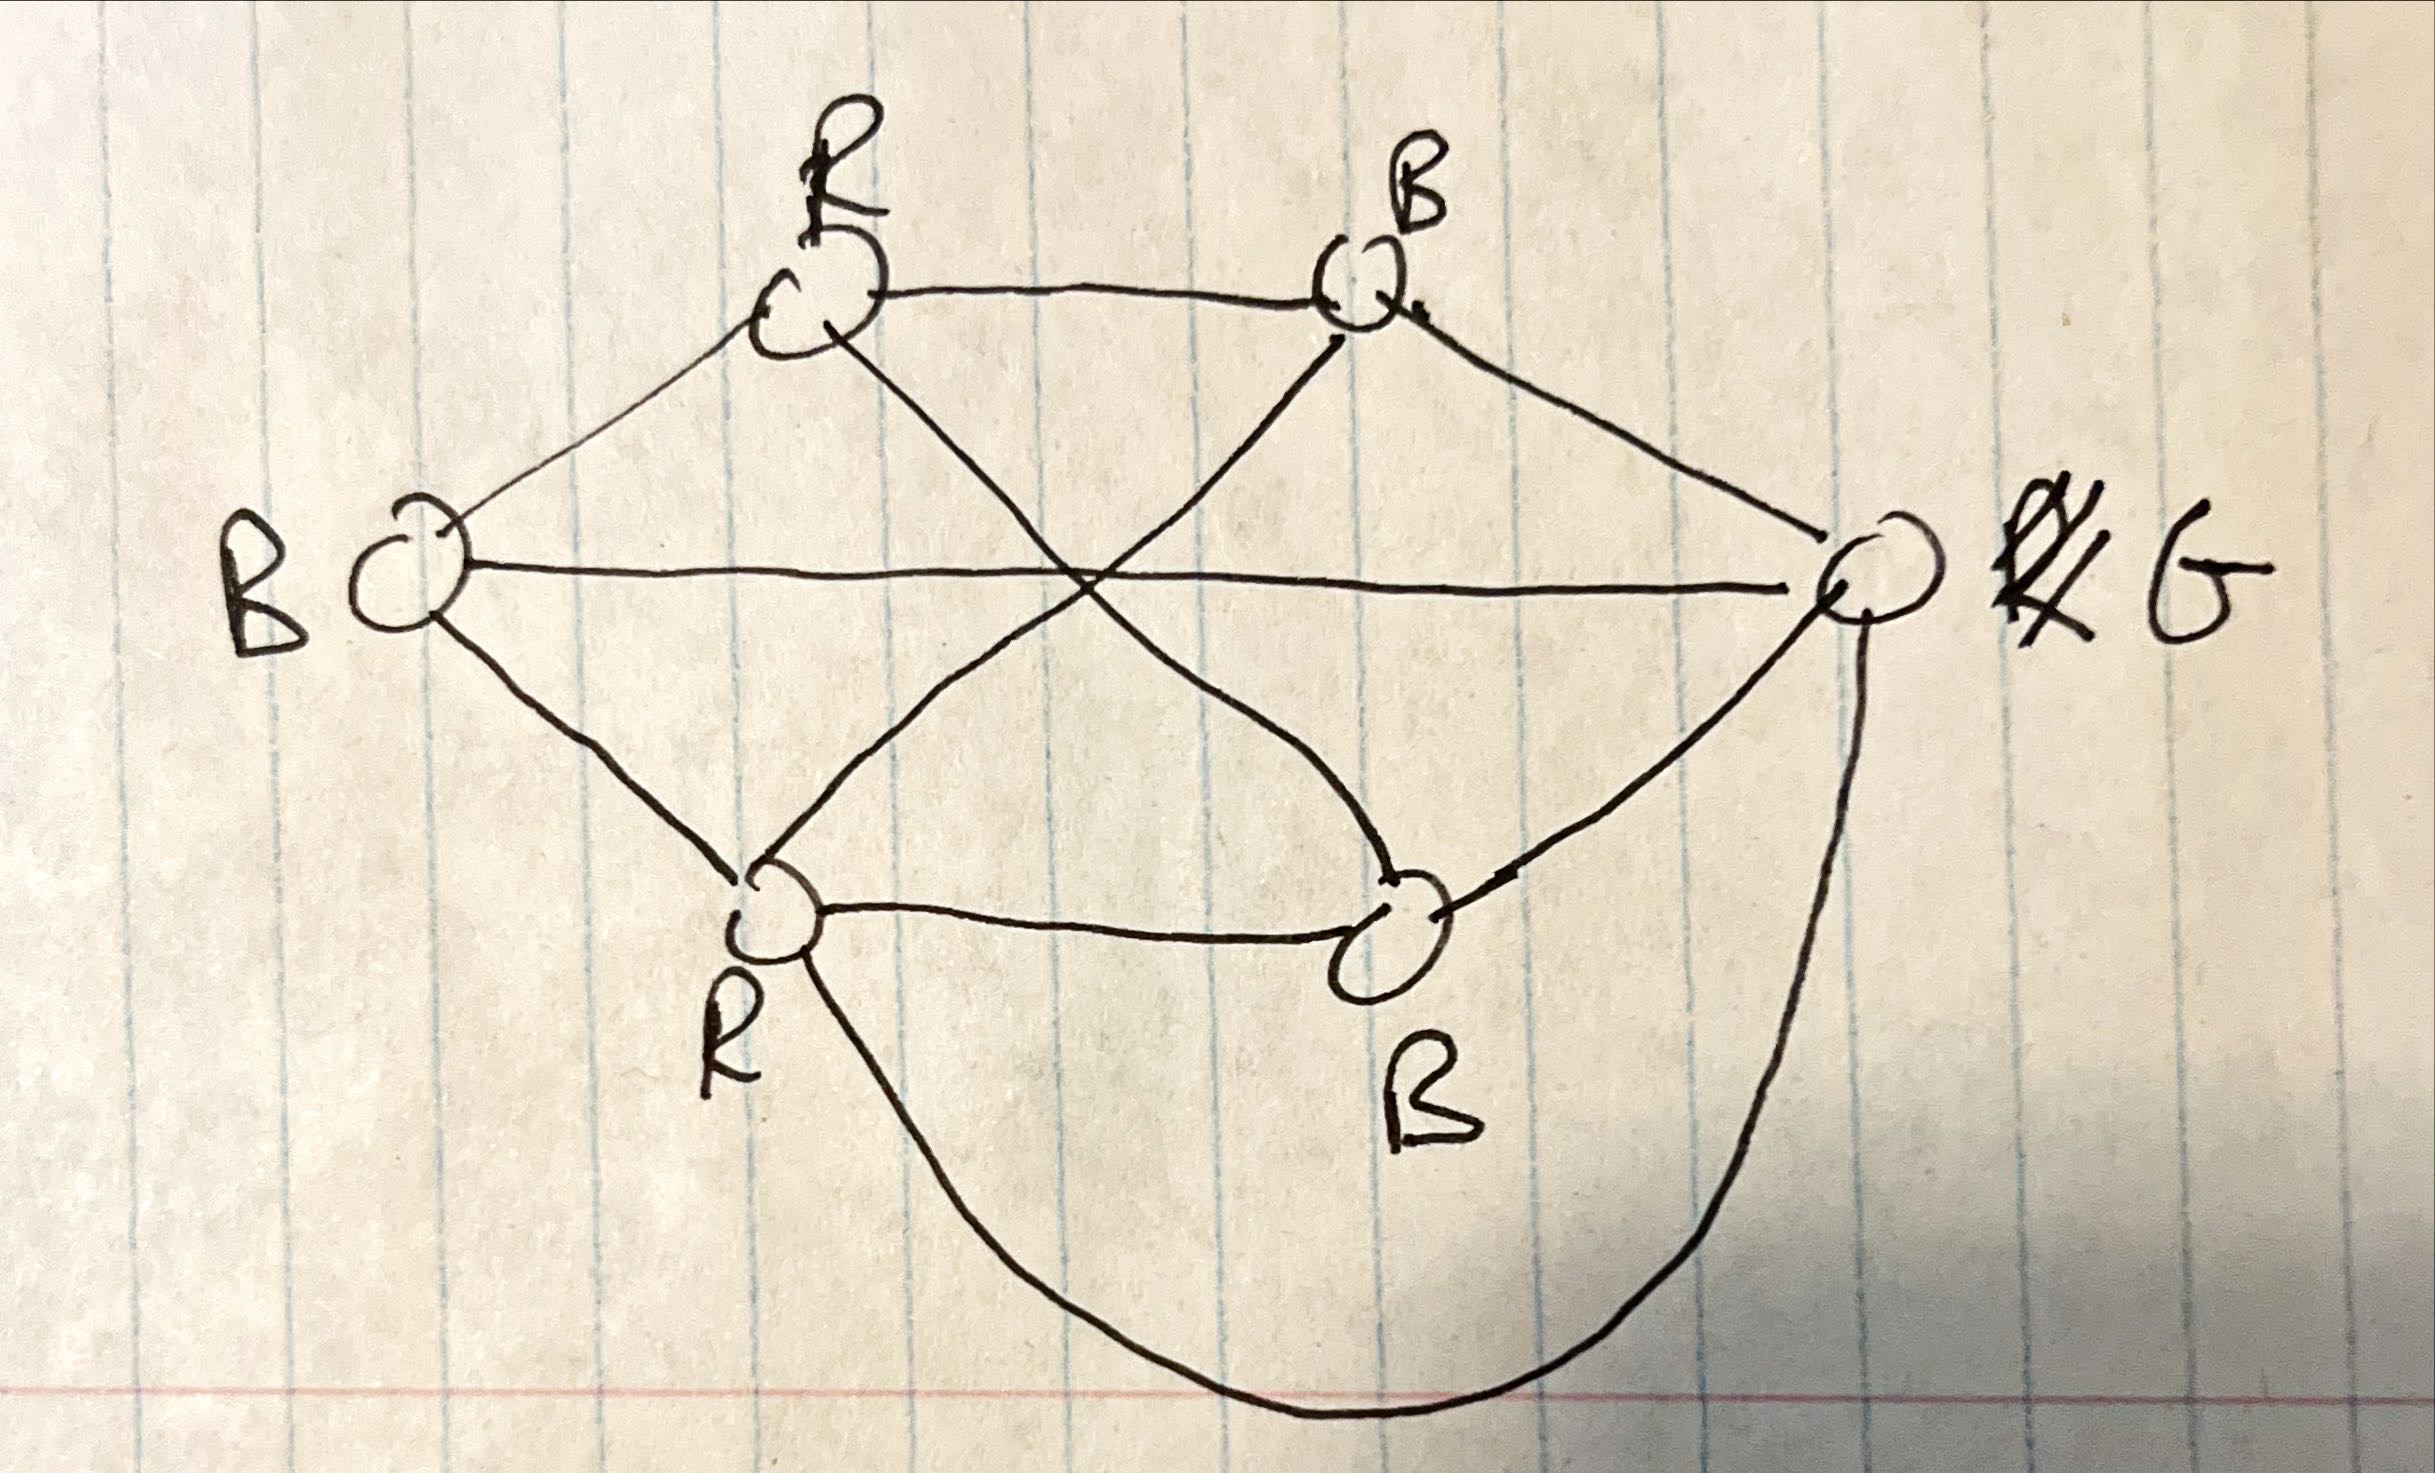 R
B
B
R G
R
B